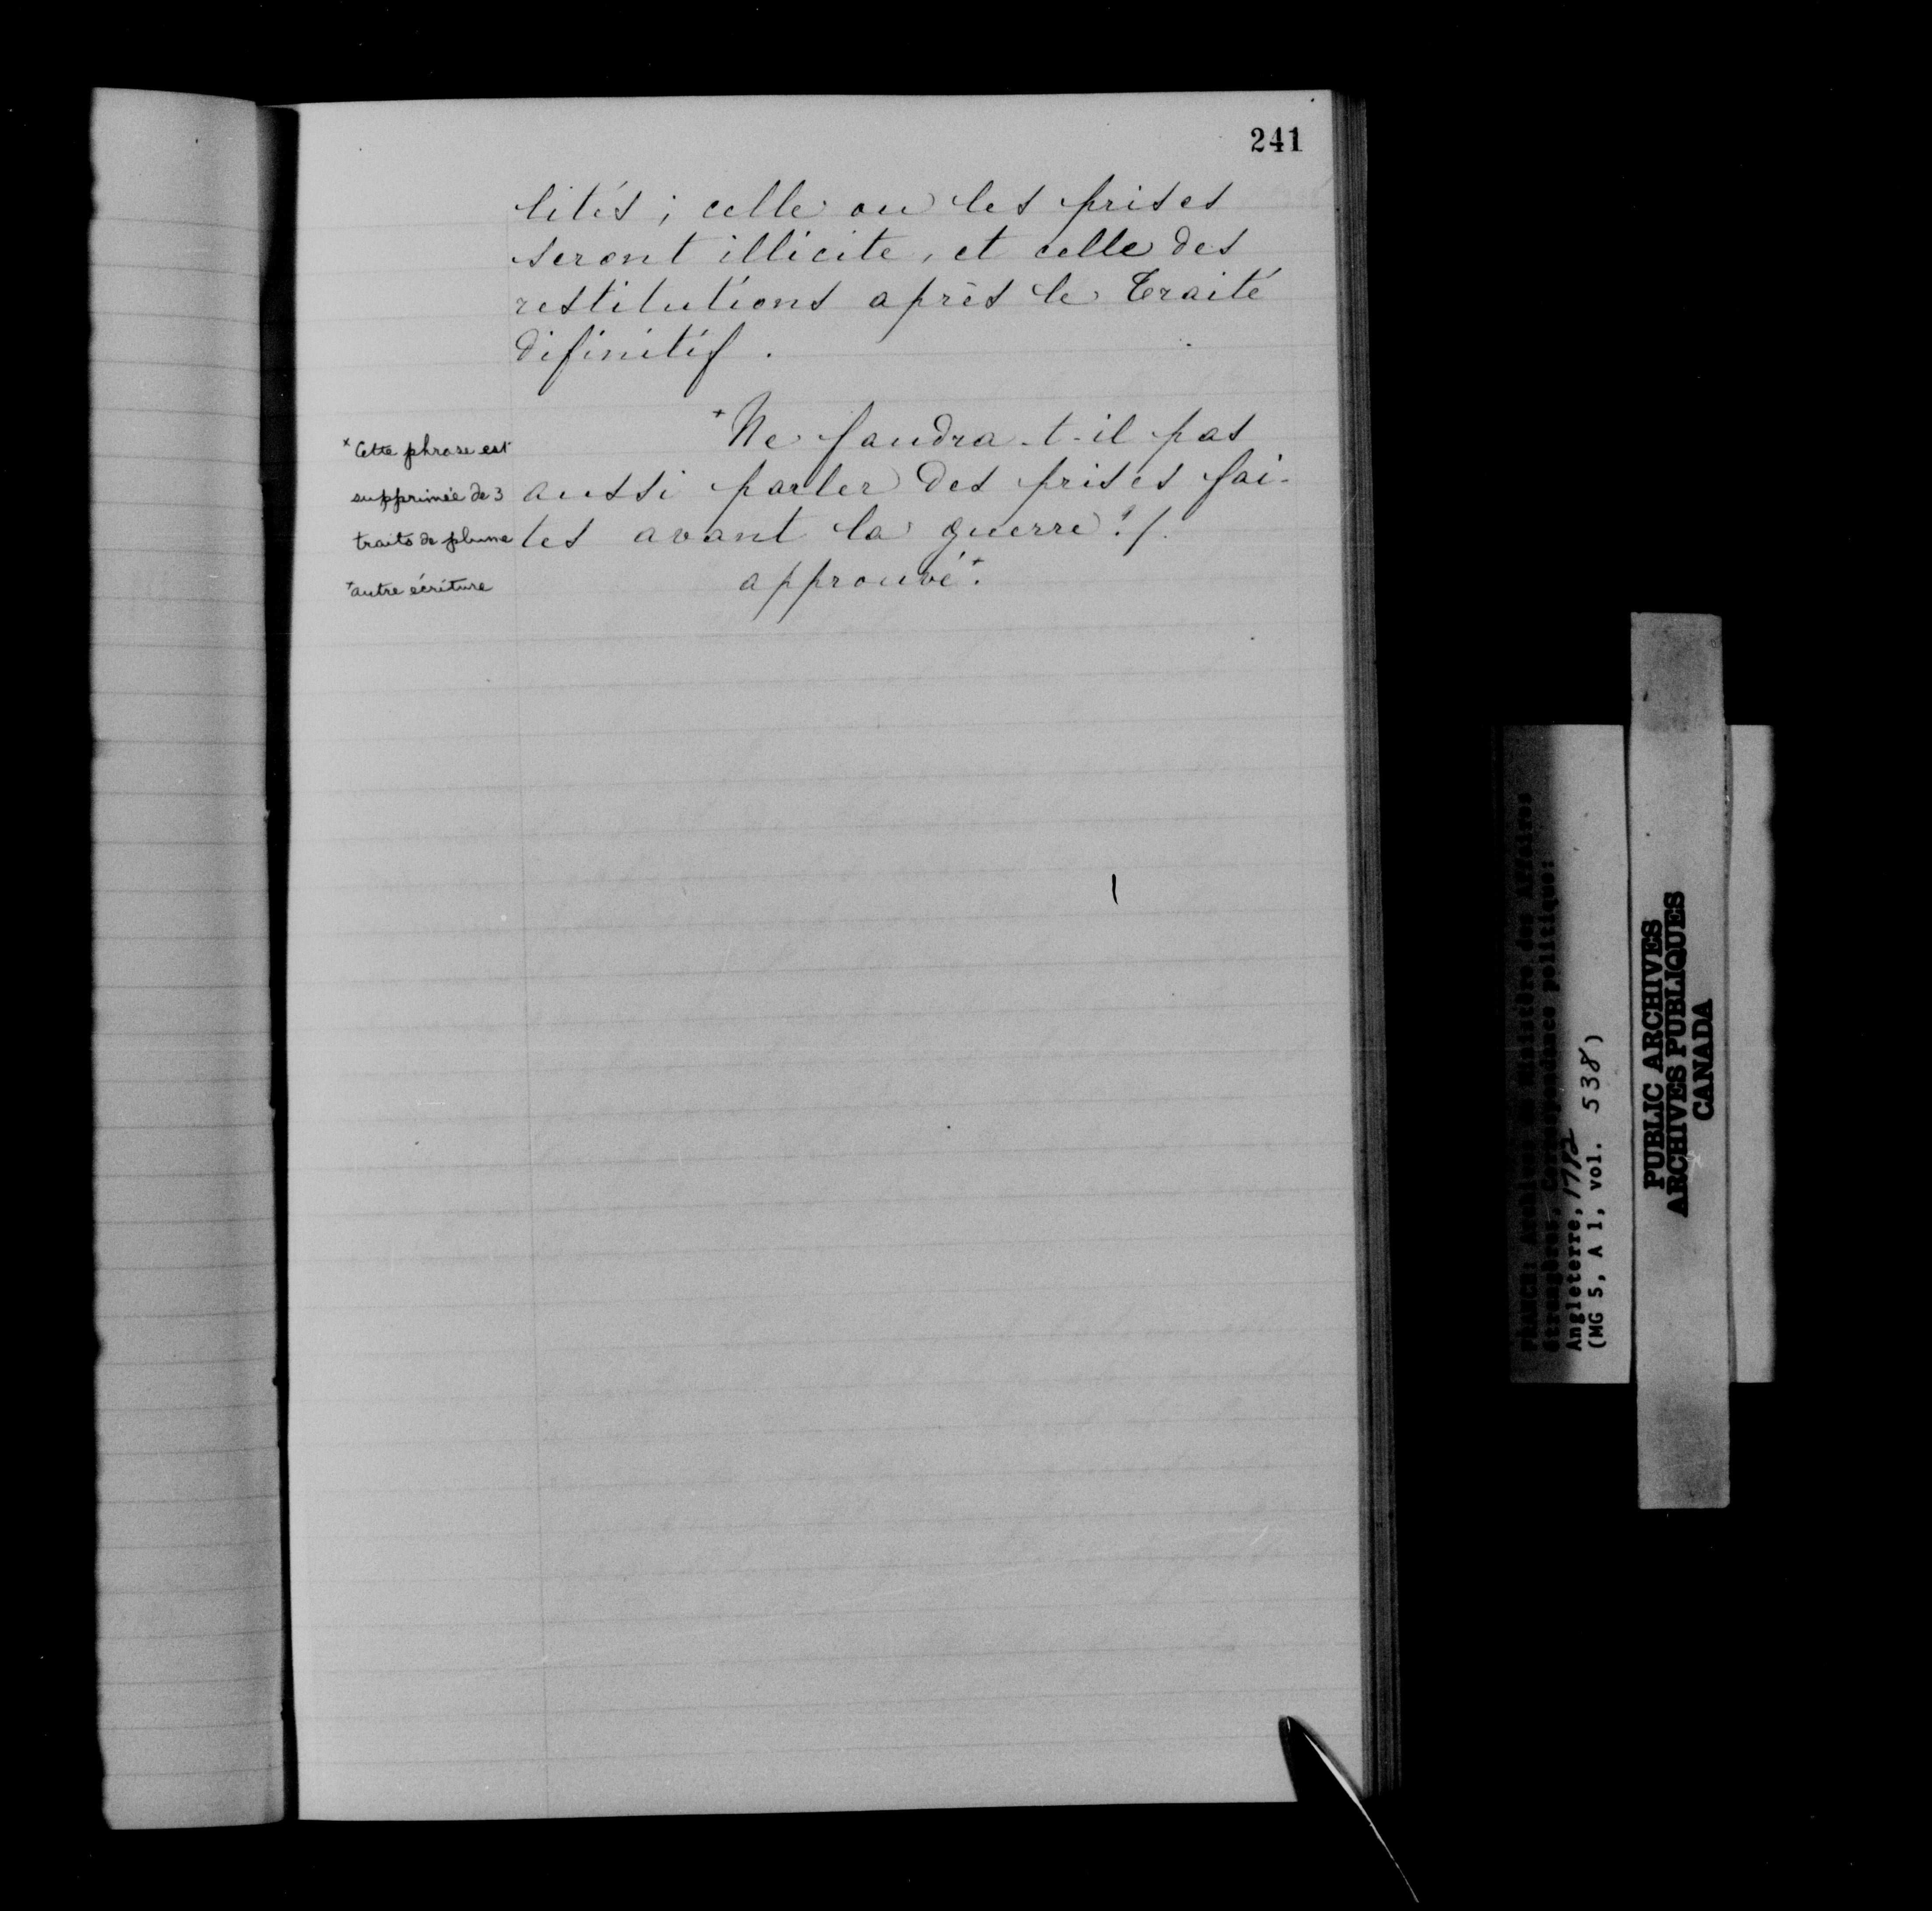 241
lités ; celle ou les prises
seront illicite, et celle des
restitutions après le Traité
difinitif.
+Ne faudra-t-il pas
aussi parler des prises fai-
tes avant la guerre ? /.
approuvé+.
x Cette phrase est
supprimée de 3
traits de plume
+autre écriture
FRANCE: Archives du Ministère des Affaires
étrangères, Correspondance politique:
Angleterre, 1782
(MG 5, A 1, vol. 538)
PUBLIC ARCHIVES
ARCHIVES PUBLIQUES
CANADA